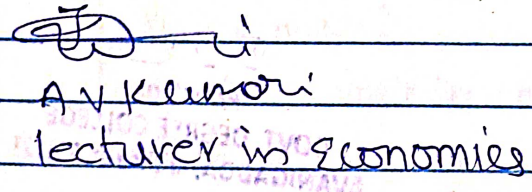 A V Kumari
lecturer in Economics